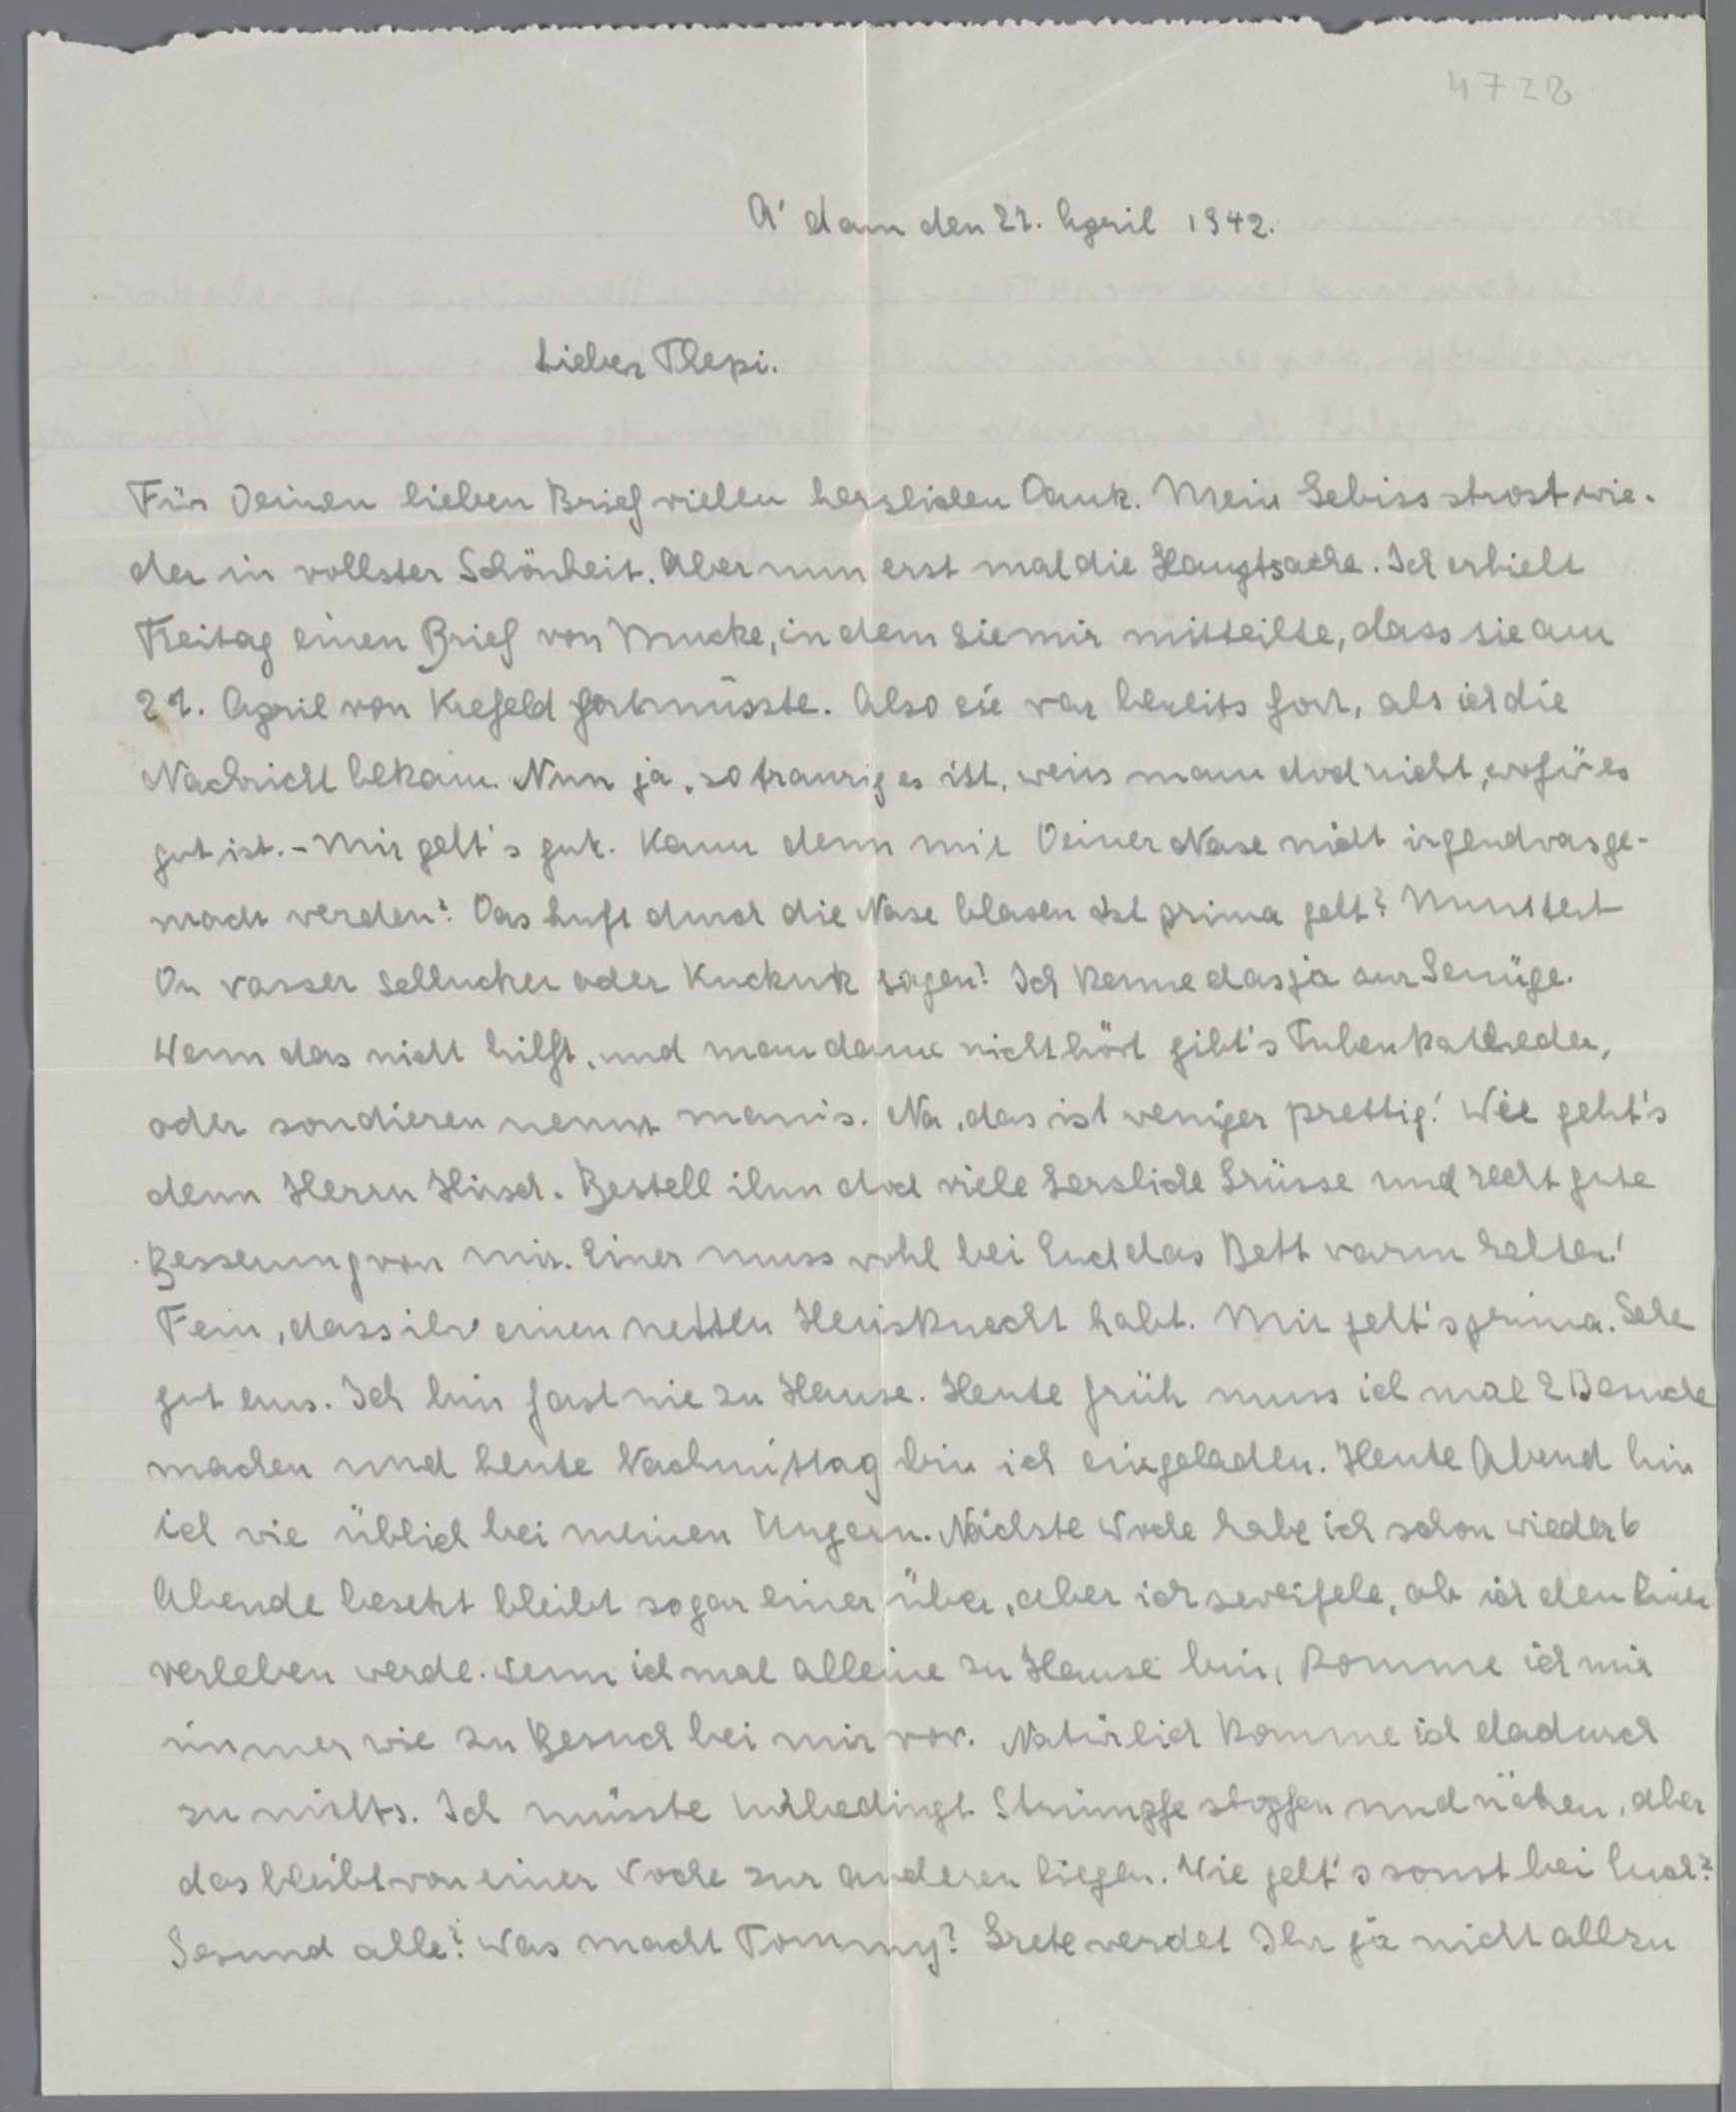 4728
A'dam den 27. April 1942.
Lieber Thepi.
Für Deinen lieben Brief vielen herzlichen Dank. Mein Gebiss strost wie-
der in vollster Schönheit. Aber nun erst mal die Hauptsache. Ich erhielt
Freitag einen Brief von Mucke, in dem sie mir mitteilte, dass sie am
22. April von Krefeld fortmüsste. Also sie war bereits fort, als ich die
Nachricht bekam. Nun ja, so traurig es ist, weiss man doch nicht, wofür es
gut ist. - Mir geht's gut. Kann denn mit Deiner Nase nicht irgendwas ge-
macht werden? Das Luft durch die Nase blasen ist prima gelt? Musstest
Du Wasser schlucken oder Kuckuk sagen? Ich kenne das ja zur Genüge.
Wenn das nicht hilft, und man dann nicht hört gibt's Tubenkatheder,
oder sondieren nennt man's. Na, das ist weniger prettig! Wie geht's
denn Herrn Hirsch. Bestell ihm doch viele herzliche Grüsse und recht gute
Besserung von mir. Einer muss wohl bei Euch das Bett warm halten!
Fein, dass ihr einen netten Hausknecht habt. Mir geht's prima. Sehe
gut aus. Ich bin fast nie zu Hause. Heute früh muss ich mal 2 Besuche
machen und heute Nachmittag bin ich eingeladen. Heute Abend bin
ich wie üblich bei meinen Ungarn. Nächste Woche habe ich schon wieder 6
Abende besetzt bleibt sogar einer über, aber ich zweifele, ob ich den hier
verleben werde. Wenn ich mal alleine zu Hause bin, komme ich mir
immer wie zu Besuch bei mir vor. Natürlich komme ich dadurch
zu nichts. Ich müsste unbedingt Strümpfe stopfen und nähen, aber
das bleibt von einer Woche zur anderen liegen. Wie geht's sonst bei Euch?
Gesund alle? Was macht Tommy? Grete werdet Ihr ja nicht allzu